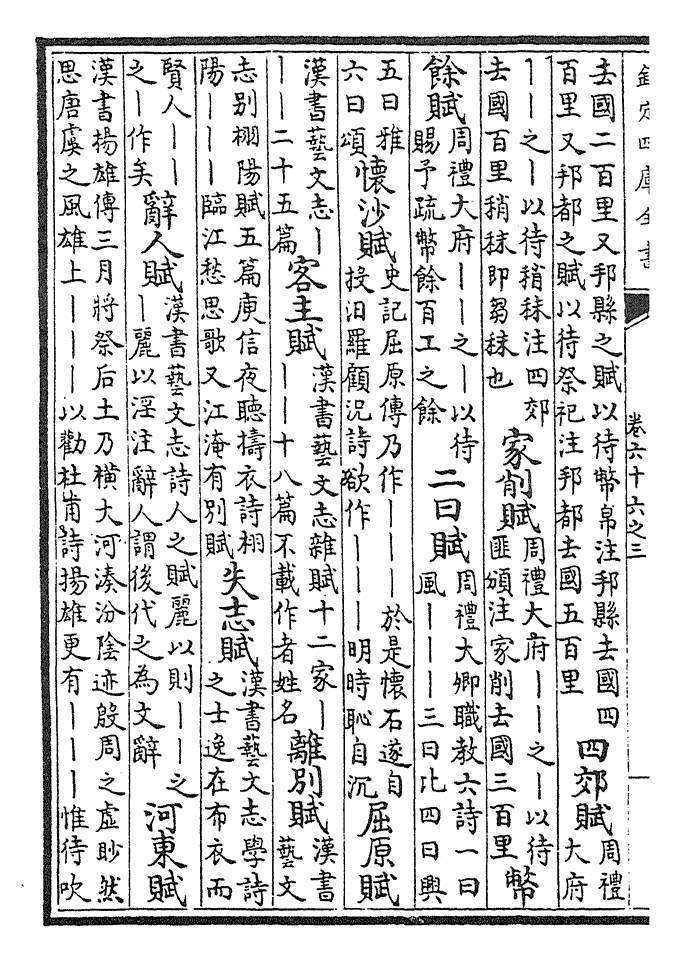 欽定四庫全書
卷六十六之三
去國二百里又邦縣之賦以待幣帛注邦縣去國四
百里又邦都之賦以待祭祀注邦都去國五百里
四郊賦
周禮
大府
丨丨之丨以待稍秣注四郊
去國百里稍秣即芻秣也
家削賦
周禮大府丨丨之丨以待
匪頒注家削去國三百里
幣
餘賦
周禮大府丨丨之丨以待
賜予疏幣餘百工之餘
二曰賦
周禮大卿職教六詩一曰
風丨丨丨三曰比四曰興
五曰雅
六曰頌
懷沙賦
史記屈原傳乃作丨丨丨於是懷石遂自
投汨羅顧況詩欲作丨丨丨明時恥自沉
屈原賦
漢書藝文志丨
丨丨二十五篇
客主賦
漢書藝文志雜賦十二家丨
丨丨十八篇不載作者姓名
離別賦
漢書
藝文
志別栩陽賦五篇庾信夜聽擣衣詩栩
陽丨丨丨臨江愁思歌又江淹有別賦
失志賦
漢書藝文志學詩
之士逸在布衣而
賢人丨丨
之丨作矣
辭人賦
漢書藝文志詩人之賦麗以則丨丨之
丨麗以淫注辭人謂後代之為文辭
河東賦
漢書揚雄傳三月將祭后土乃橫大河湊汾陰迹殷周之虛眇然
思唐虞之風雄上丨丨丨丨以勸杜甫詩揚雄更有丨丨丨惟待吹